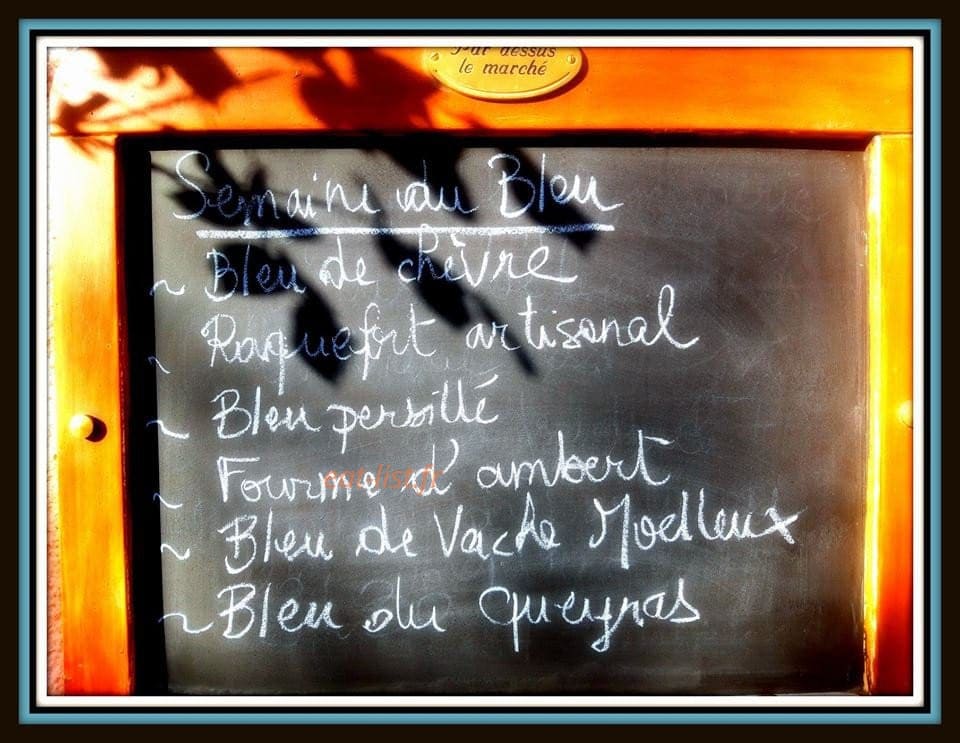 Par dessus
le marché
Semaine du Bleu
~ Bleu de chèvre
~ Roquefort artisanal
~ Bleu persillé
~ Fourme d'ambert
~ Bleu de Vache Moelleux
~ Bleu du queyras
eat-list.fr